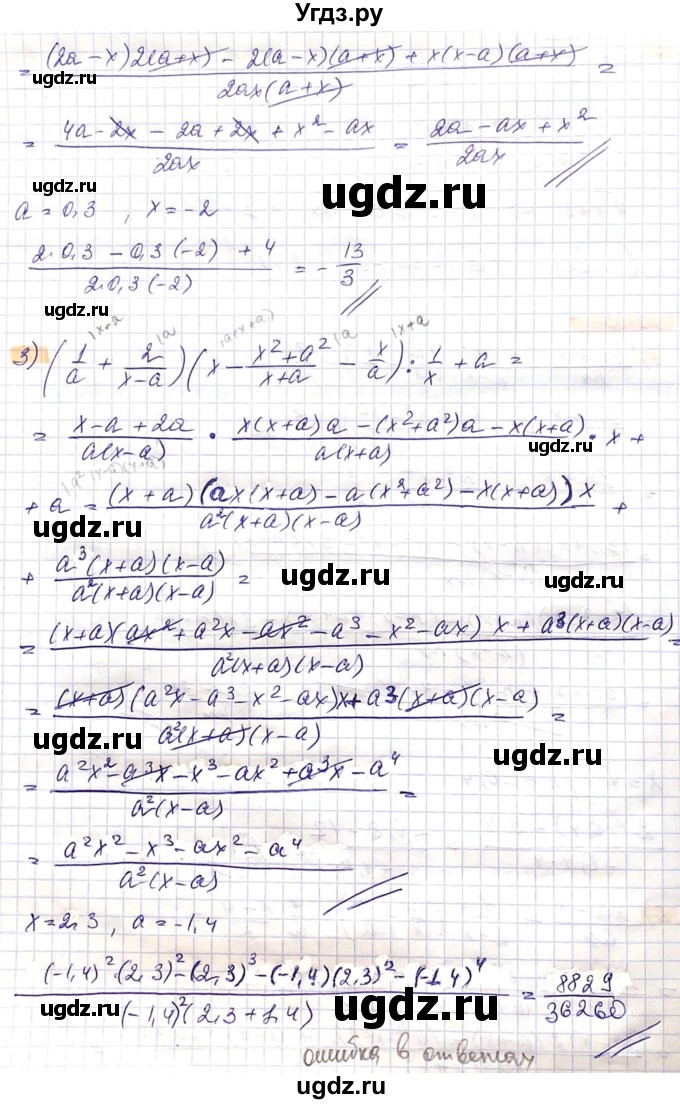 Угдз.ру
= ((2a-x)2(a+x) - 2(a-x)(a+x) + x(x-a)(a+x)) / (2ax(a+x)) =
= (4a - 2x - 2a + 2x + x² - ax) / (2ax) = (2a - ax + x²) / (2ax)
ugdz.ru
ugdz.ru
a = 0,3 , x = -2
ugdz.ru
(2·0,3 - 0,3(-2) + 4) / (2·0,3(-2)) = - 13/3
ugdz.ru
|x-a |a |a(x+a) |a |x+a
3) (1/a + 2/(x-a)) (x - (x²+a²)/(x+a) - x/a) : 1/x + a =
= (x-a+2a) / (a(x-a)) · (x(x+a)a - (x²+a²)a - x(x+a)) / (a(x+a)) · x +
ugdz.ru
|a²(x-a)(x+a)
+ a = ((x+a)(ax(x+a) - a(x²+a²) - x(x+a))x) / (a²(x+a)(x-a)) +
ugdz.ru
ugdz.ru
+ (a³(x+a)(x-a)) / (a²(x+a)(x-a)) =
ugdz.ru
ugdz.ru
= ((x+a)(ax² + a²x - ax² - a³ - x² - ax) x + a³(x+a)(x-a)) / (a²(x+a)(x-a)) =
= ((x+a)(a²x - a³ - x² - ax)x + a³(x+a)(x-a)) / (a²(x+a)(x-a)) =
ugdz.ru
ugdz.ru
= (a²x² - a³x - x³ - ax² + a³x - a⁴) / (a²(x-a)) =
= (a²x² - x³ - ax² - a⁴) / (a²(x-a))
ugdz.ru
x = 2,3 , a = -1,4
ugdz.ru
((-1,4)²·(2,3)² - (2,3)³ - (-1,4)(2,3)² - (-1,4)⁴) / ((-1,4)²(2,3+1,4)) = 8829/36260
ugdz.ru
ugdz.ru
ошибка в ответах
ugdz.ru